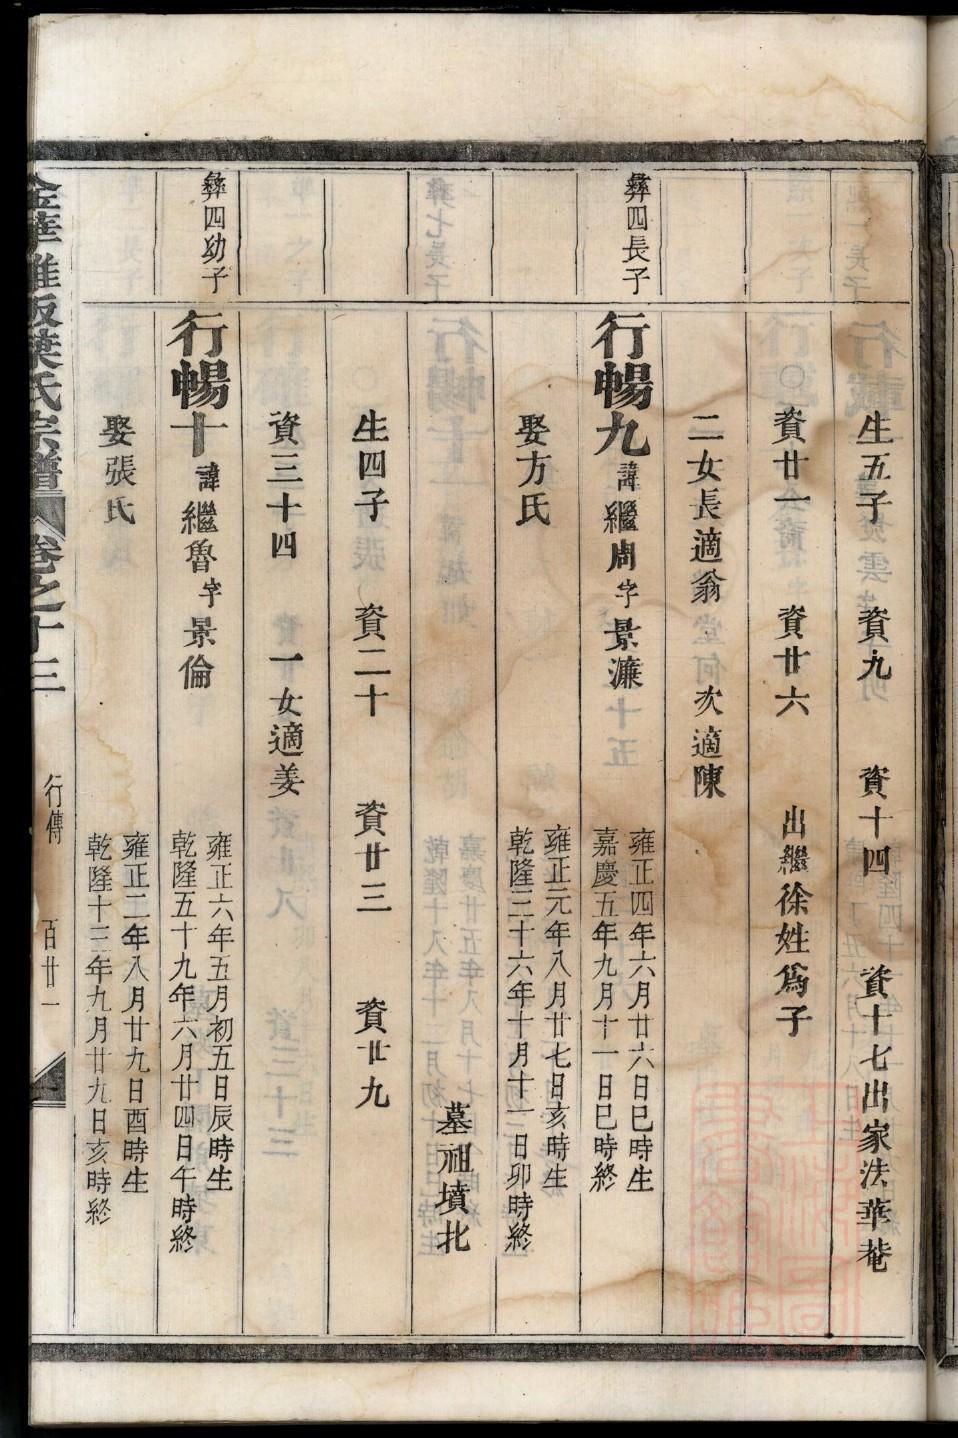 生五子 資九 資十四 資十七出家法華菴
資廿一 資廿六 出繼徐姓爲子
二女長適翁 次適陳
彝四長子
行暢九 諱繼周字景濂
雍正四年六月廿六日巳時生
嘉慶五年九月十一日巳時終
娶方氏
雍正元年八月廿七日亥時生
乾隆三十六年十月十一日卯時終
墓祖墳北
生四子 資二十 資廿三 資廿九
資三十四 一女適姜
彝四幼子
行暢十 諱繼魯字景倫
雍正六年五月初五日辰時生
乾隆五十九年六月廿四日午時終
娶張氏
雍正二年八月廿九日酉時生
乾隆十三年九月廿九日亥時終
葉氏宗譜 卷之十三 行傳 百廿一